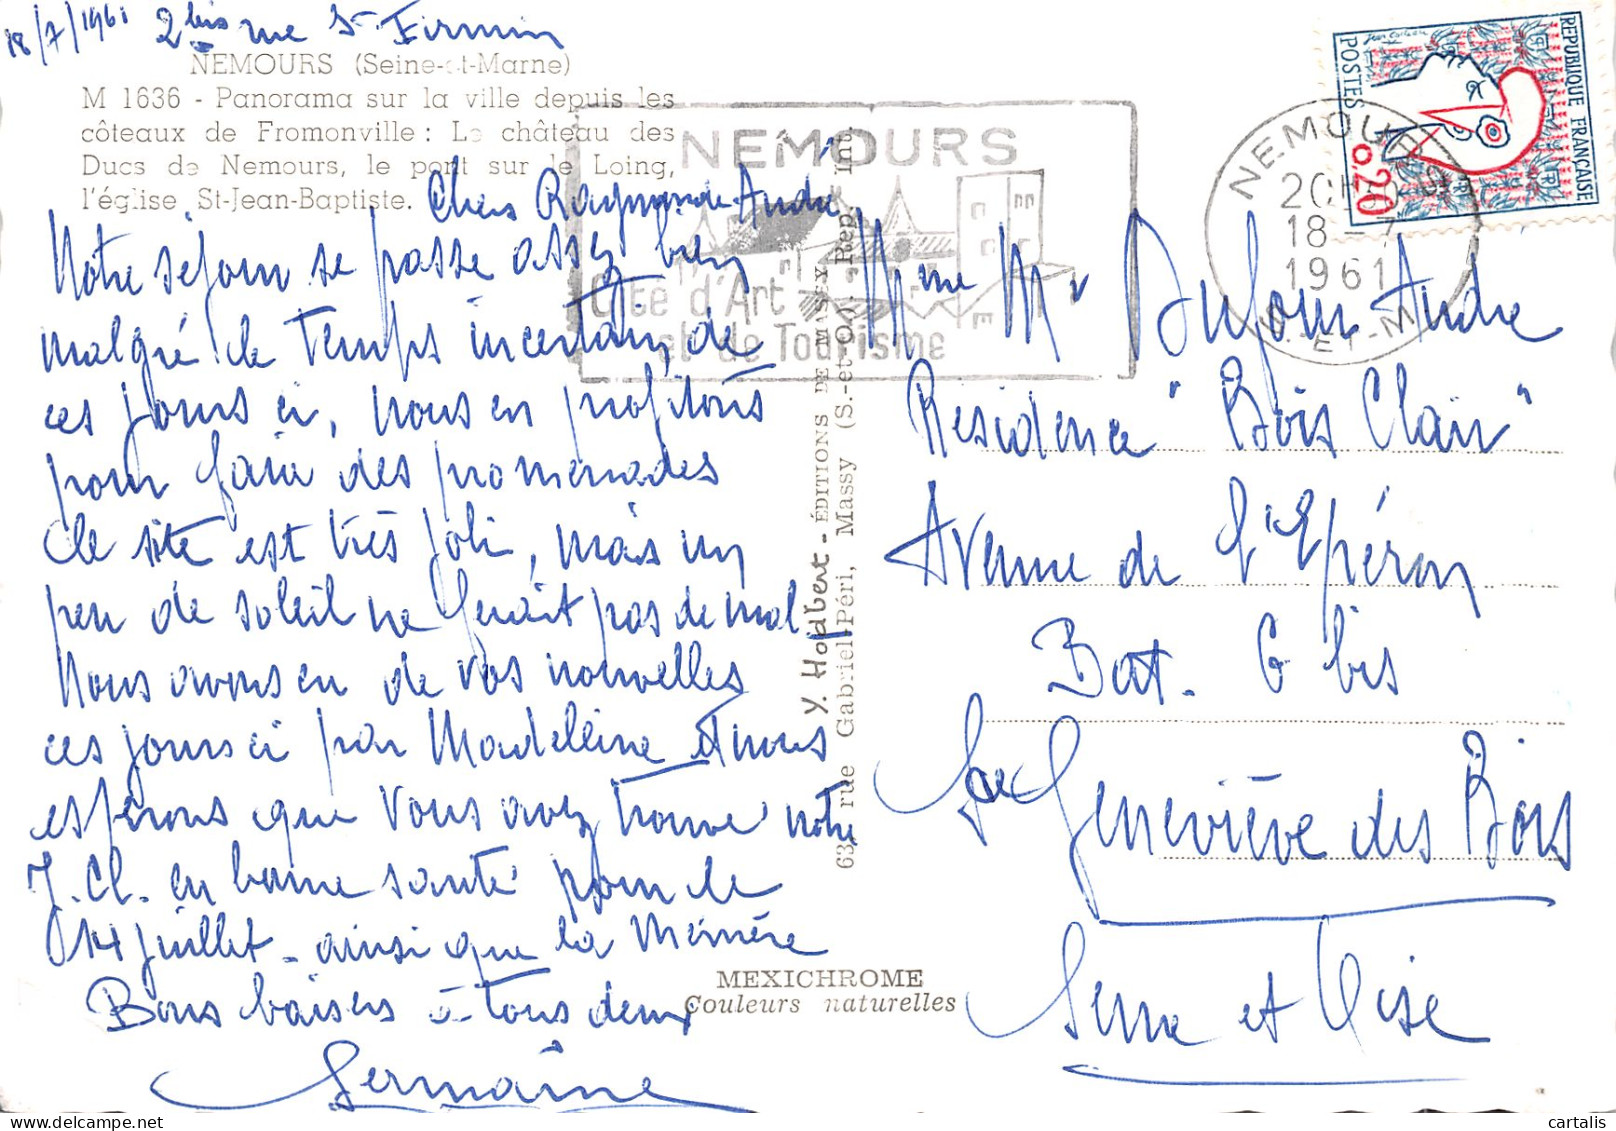 18/7/1961 2bis rue St Firmin
NEMOURS (Seine-et-Marne)
M 1636 - Panorama sur la ville depuis les
côteaux de Fromonville : Le château des
Ducs de Nemours, le pont sur le Loing,
l'église St-Jean-Baptiste.
Chers Raymonde André
Notre séjour se passe assez bien
malgré le temps incertain de
ces jours ci, nous en profitons
pour faire des promenades
le site est très joli, mais un
peu de soleil ne ferait pas de mal
Nous avons eu de vos nouvelles
ces jours ci par Madeleine et nous
espérons que vous avez trouvé notre
J. Cl. en bonne santé pour le
14 juillet - ainsi que la Mémère
Bons baisers à tous deux
Germaine
Y. Hodbert - ÉDITIONS DE MASSY
63, rue Gabriel-Péri, Massy (S.-et-O.) - Rep. int.
MEXICHROME
Couleurs naturelles
NEMOURS
Cité d'Art
et de Tourisme
NEMOURS
18-7
1961
S.-ET-M.
REPUBLIQUE FRANCAISE
POSTES
0,20
Jean Cocteau
Mme Mr Dufour André
Residence "Bois Clair"
Avenue de l'Epéron
Bat. G bis
Ste Geneviève des Bois
Seine et Oise
cartalis